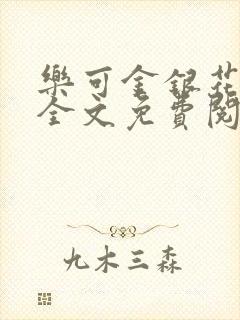 樂可金銀花
全文免費閱
九木三森